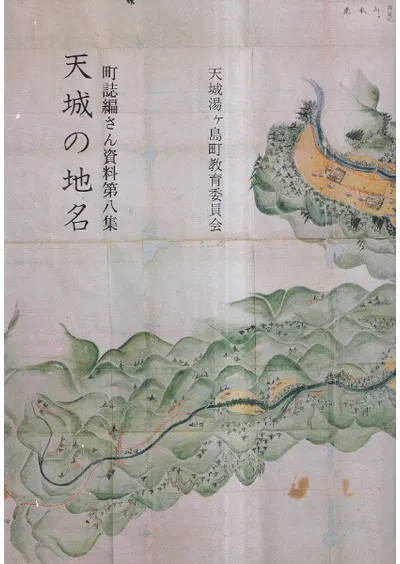 天城湯ヶ島町教育委員会
町誌編さん資料第八集
天城の地名